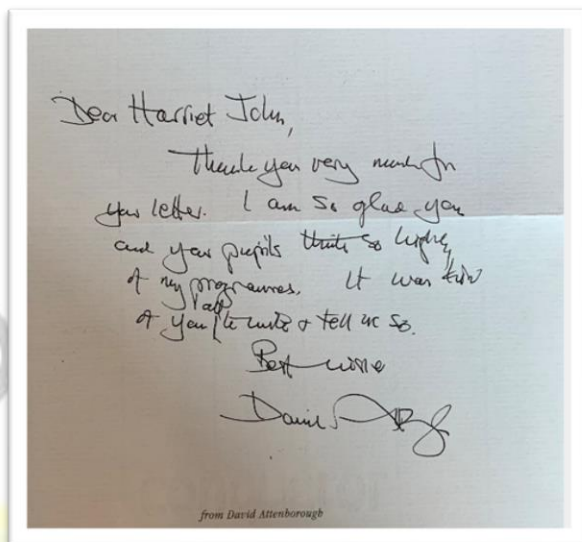 Dear Harriet John,
Thank you very much for
your letter. I am so glad you
and your pupils think so highly
of my programmes. It was kind
all
of you to write & tell me so.
Best wishes
David
from David Attenborough